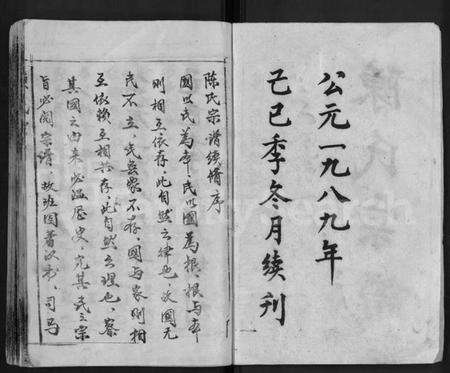 公元一九八九年
己巳季冬月续刊
陈氏宗谱续修序
国以民为本，民以国为根，根与本
则相互依存，此自然之律也，次国无
民不立，民无家不存，国与家则相
互依赖互相共存，此自然之理也，察
其国之由来必温历史，究其氏之宗
旨必阅宗谱，故班固著汉书，司马